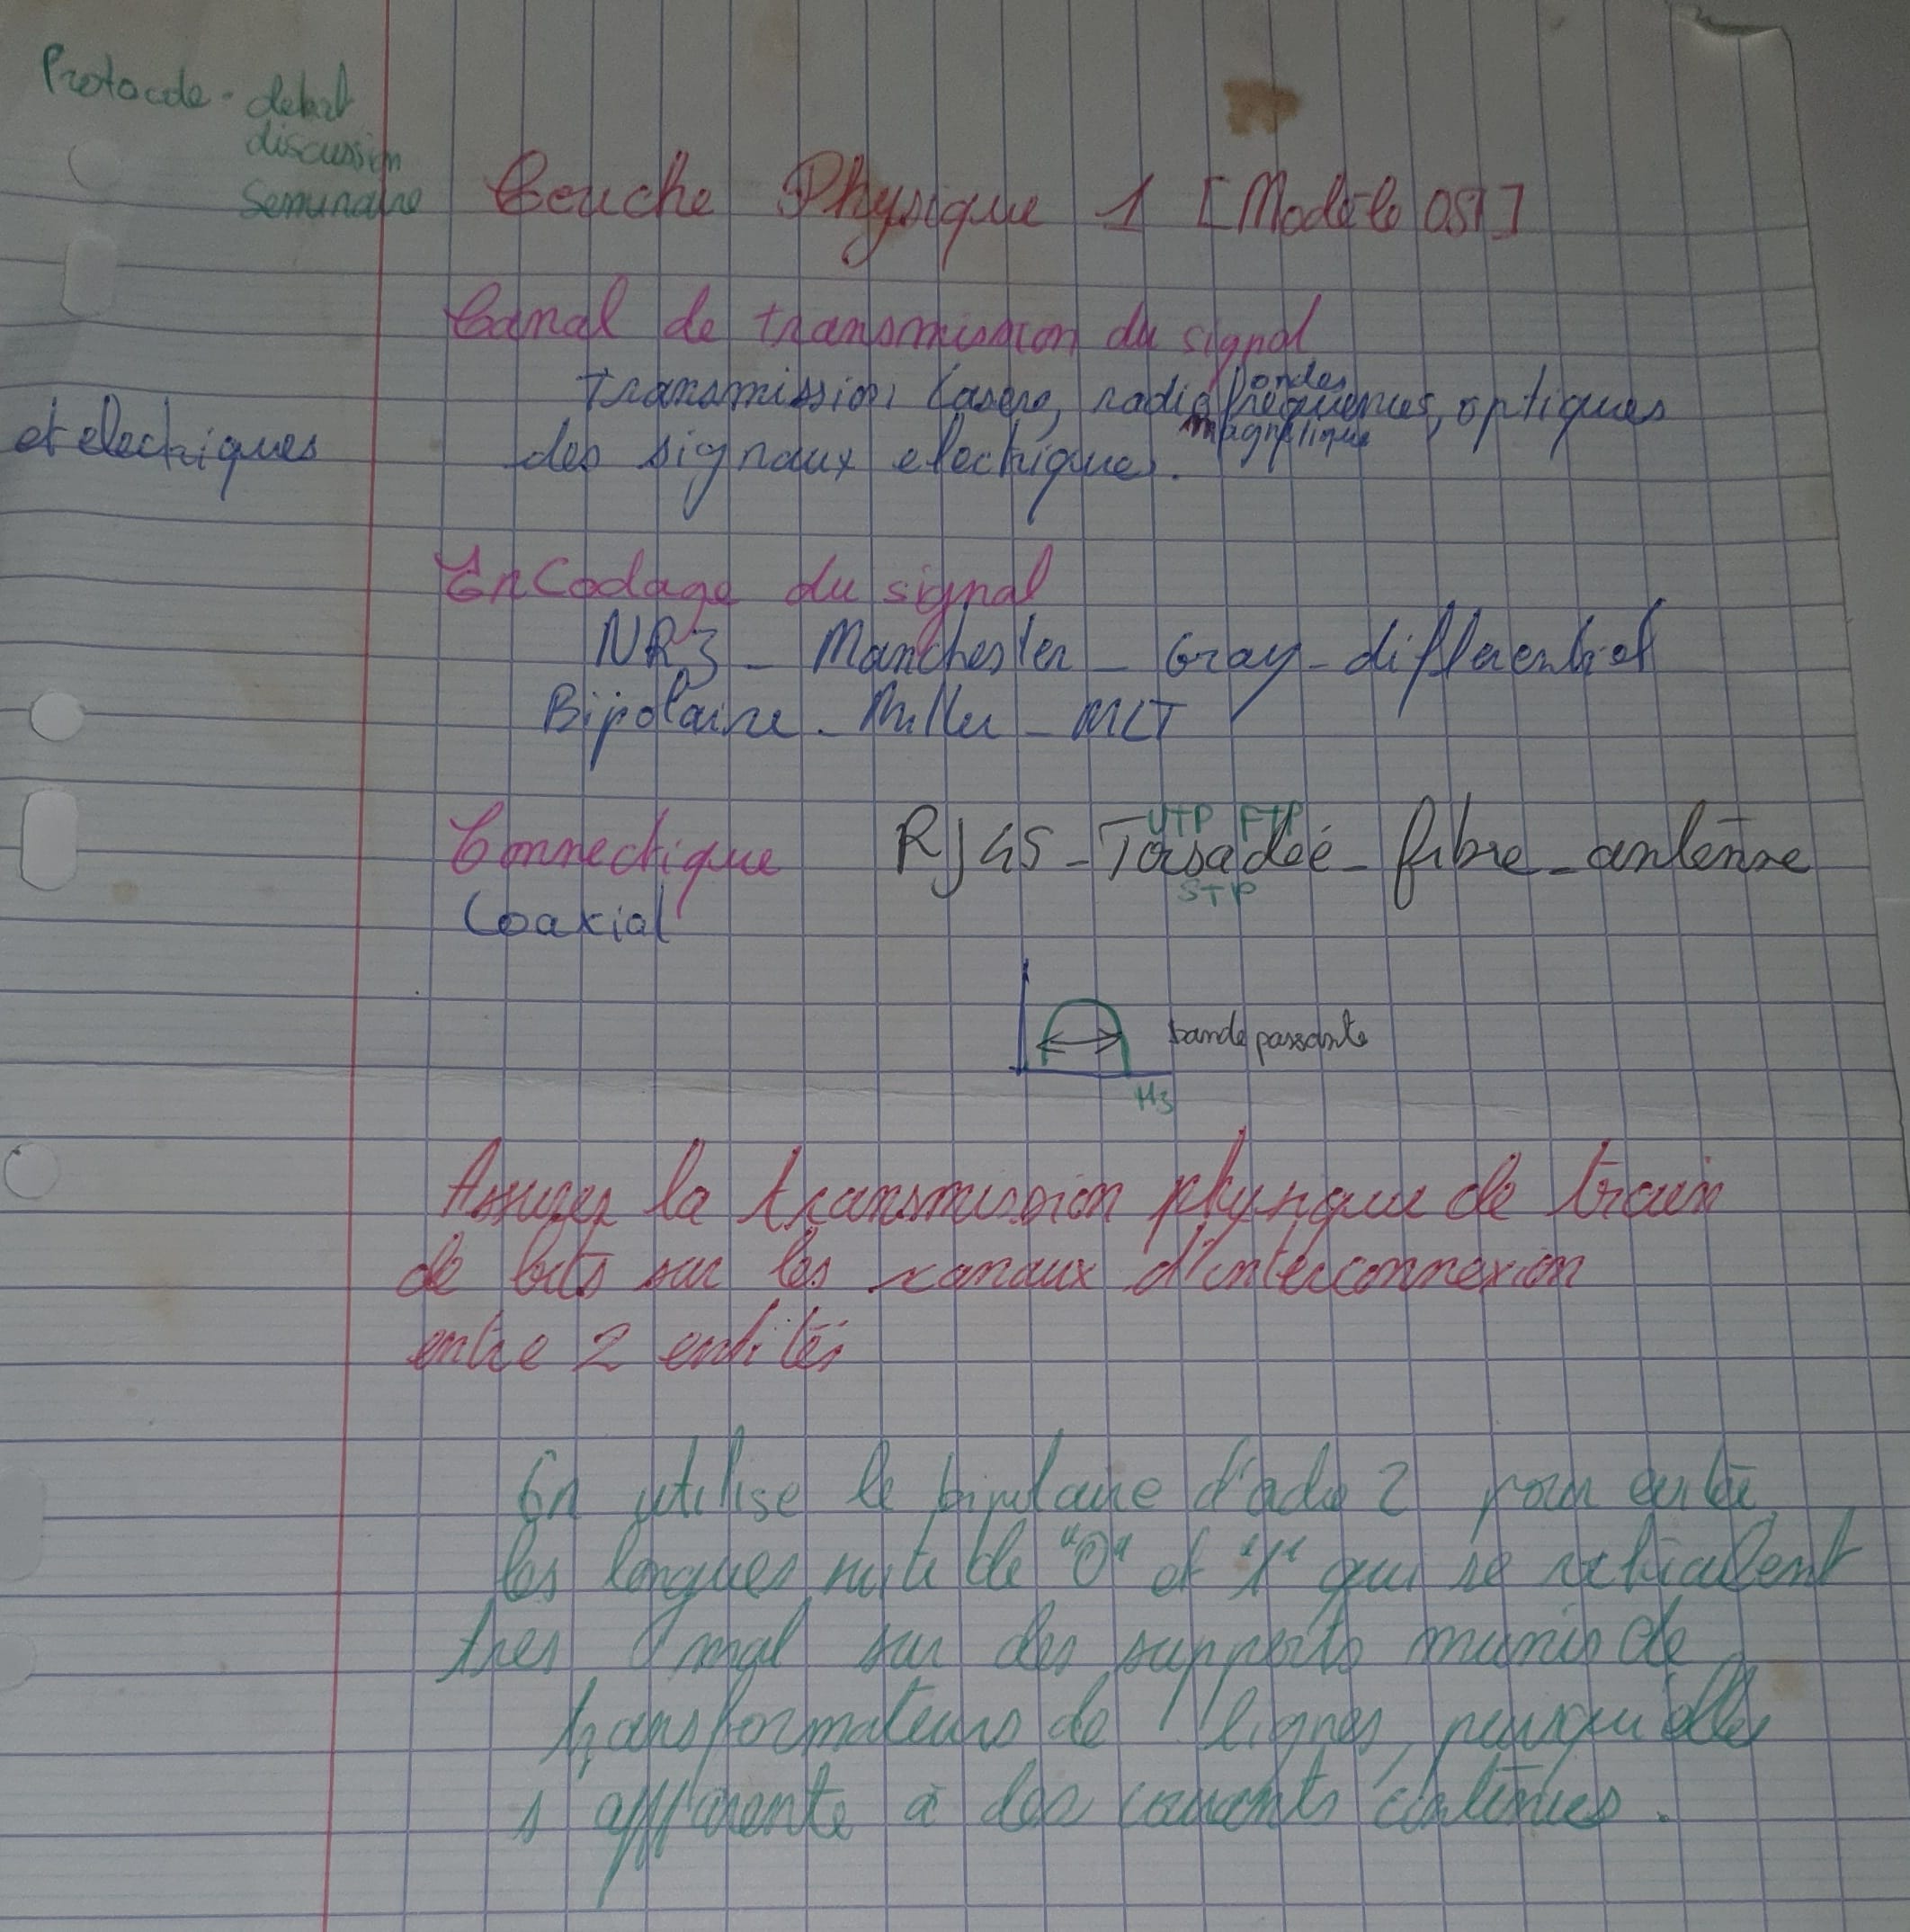 Protocole - debat
discussion
Seminaire
Couche Physique 1 [Modèle OSI]
Canal de transmission du signal
transmission lasers, radio fréquences, optiques
ondes
magnetique
et electriques
des signaux electriques.
EnCodage du signal
NRZ - Manchester - Gray - differentiel
Bipolaire - Miller - MLT
Connectique RJ45 - Torsadée - fibre - antenne
UTP FTP
STP
Coaxial
bande passante
Hz
Assurer la transmission physique de train
de bits sur les canaux d'interconnexion
entre 2 entités
On utilise le bipolaire d'ordre 2 pour eviter
les longues suite de "0" et "1" qui se
tres mal sur des supports munis de
transformateurs de lignes, puisqu'elles
s'apparente à des courants continues.